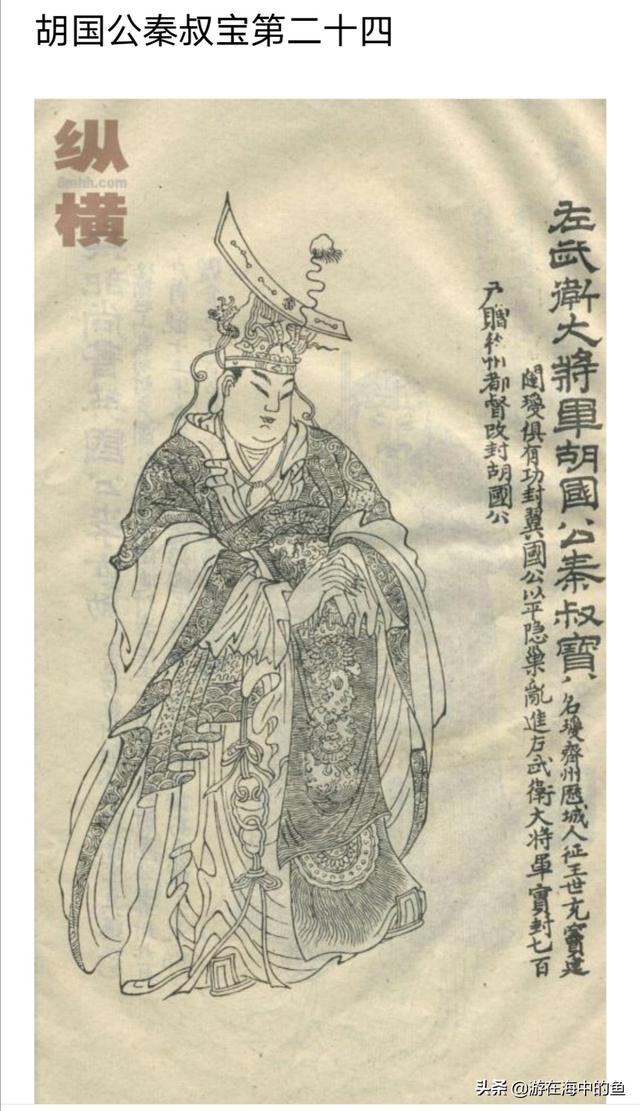 胡国公秦叔宝第二十四
纵
横
左武衛大將軍胡國公秦叔寶 名瓊齊州歷城人征王世充竇建
闥瓊俱有功封翼國公以平隐巢亂進左武衛大將軍實封七百
戶贈徐州都督改封胡國公
头条 @游在海中的鱼